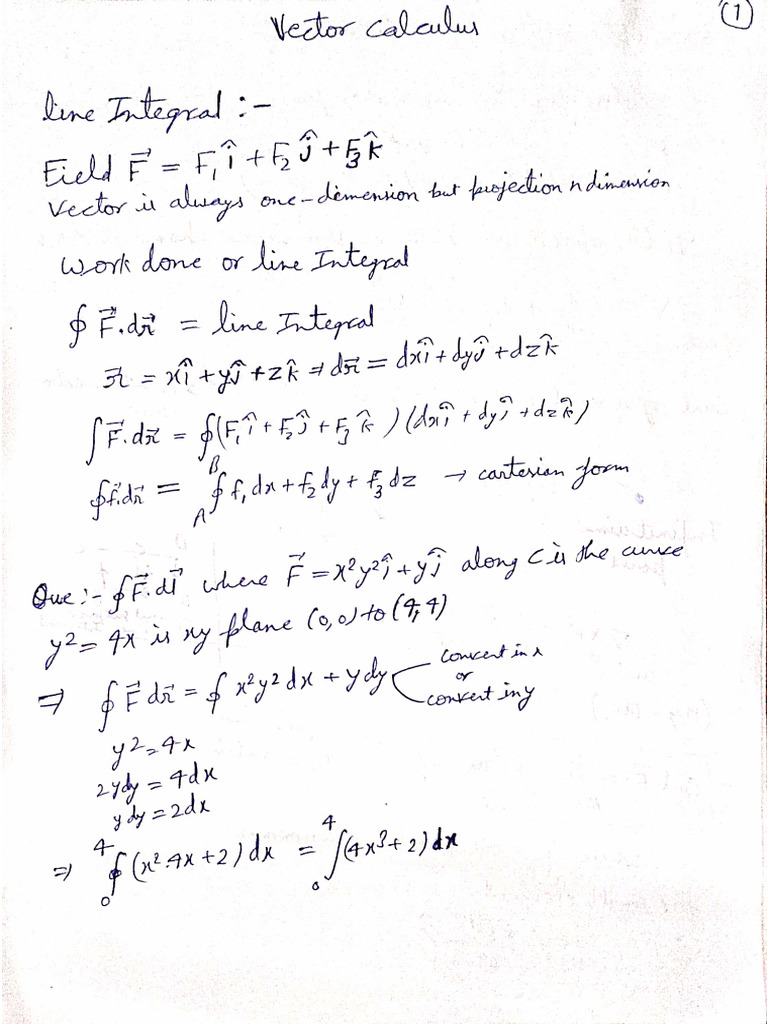 (1)
Vector calculus
line Integral :-
Field F⃗ = F₁î + F₂ĵ + F₃k̂
Vector is always one-dimension but projection n dimension
Work done or line Integral
∮ F⃗.dr⃗ = line Integral
r⃗ = xî + yĵ + zk̂ ⇒ dr⃗ = dxî + dyĵ + dzk̂
∫ F⃗.dr⃗ = ∮(F₁î + F₂ĵ + F₃k̂)(dxî + dyĵ + dzk̂)
∮f⃗.dr⃗ = ∮_A^B f₁dx + f₂dy + f₃dz → cartesian form
Que :- ∮F⃗.dr⃗ where F⃗ = x²y²î + yĵ along C is the curve
y² = 4x is xy plane (0,0) to (4,4)
⇒ ∮ F⃗ dr⃗ = ∮ x²y² dx + y dy
convert in x
or
convert in y
y² = 4x
2ydy = 4dx
ydy = 2dx
⇒ ∮₀⁴ (x².4x + 2) dx = ∫₀⁴ (4x³ + 2) dx